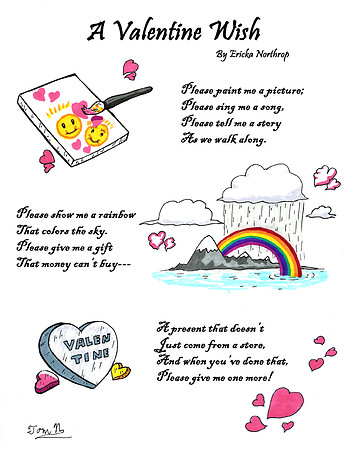 A Valentine Wish
By Ericka Northrop
Please paint me a picture;
Please sing me a song,
Please tell me a story
As we walk along.
Please show me a rainbow
That colors the sky.
Please give me a gift
That money can't buy---
VALEN
TINE
A present that doesn't
Just come from a store,
And when you've done that,
Please give me one more!
Tom N